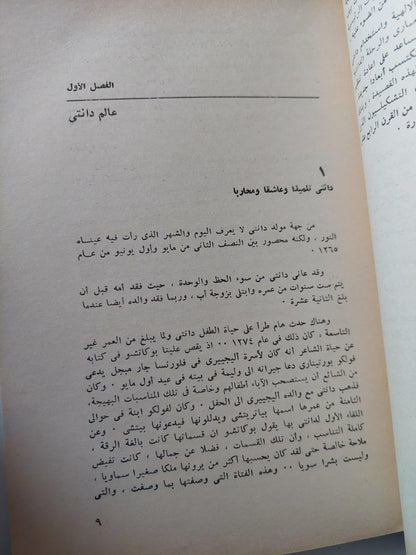 الفصل الأول
عالم دانتى
١
دانتى تلميذا وعاشقا ومحاربا
من جهة مولد دانتى لا يعرف اليوم والشهر الذى رأت فيه عيناه
النور ، ولكنه محصور بين النصف الثانى من مايو وأول يونيو من عام
١٢٦٥ ٠
وقد عانى دانتى من سوء الحظ والوحدة ، حيث فقد أمه قبل أن
يتم ست سنوات من عمره وابتلى بزوجة أب ، وربما فقد والده أيضا عندما
بلغ الثانية عشرة ٠
وهناك حدث هام طرأ على حياة الطفل دانتى ولما يبلغ من العمر غير
التاسعة ، كان ذلك فى عام ١٢٧٤ ٠٠ اذ يقص علينا بوكاتشو فى كتابه
عن حياة الشاعر أنه كان لأسرة اليجييرى فى فلورنسا جار مبجل يدعى
فولكو بورتينارى دعا جيرانه الى وليمة فى بيته فى عيد أول مايو ٠ وكان
من الشائع أن يستصحب الآباء أطفالهم وخاصة فى تلك المناسبات البهيجة ٠
فذهب دانتى مع والده اليجييرى الى الحفل ٠ وكان لفولكو ابنة فى حوالى
الثامنة من عمرها اسمها بياتريتشى ويدللونها فيدعونها بيتشى ٠ وعن
اللقاء الأول لدانتى بها يقول بوكاتشو ان قسماتها كانت بالغة الرقة ،
كاملة التناسب ، وأن تلك القسمات ، فضلا عن جمالها ، كانت تفيض
ملاحة خالصة حتى لقد كان يحسبها أكثر من يرونها ملكا صغيرا سماويا ،
وليست بشرا سويا ٠٠ وهذه الفتاة التى وصفتها بما وصفت ، والتى
٩